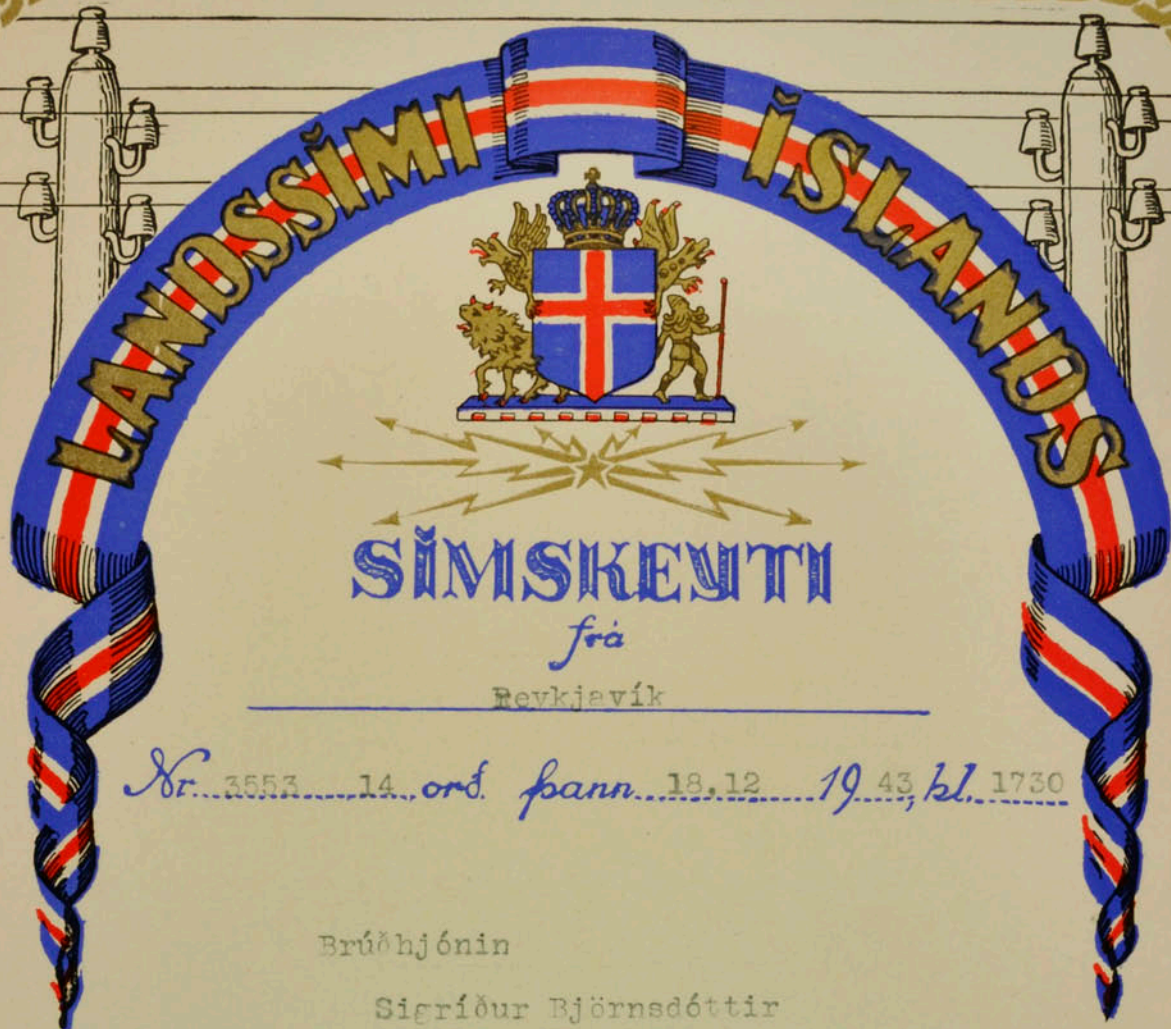 LANDSSÍMI ÍSLANDS
SÍMSKEYTI
frá
Reykjavík
Nr. 3553 14 orð. þann 18.12 19 43, kl. 1730
Brúðhjónin
Sigríður Björnsdóttir